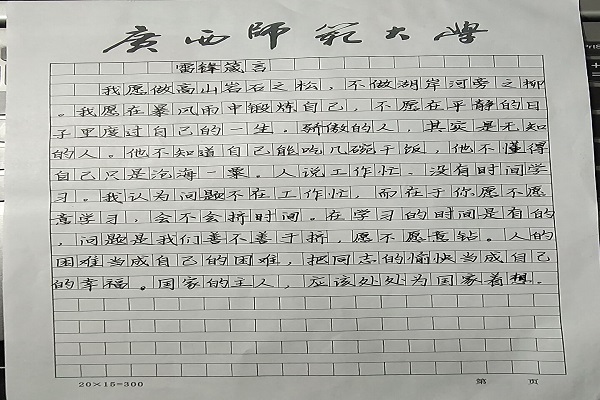 廣西師範大學
雷锋箴言
我愿做高山岩石之松，不做湖岸河旁之柳
。我愿在暴风雨中锻炼自己，不愿在平静的日
子里度过自己的一生。骄傲的人，其实是无知
的人。他不知道自己能吃几碗干饭，他不懂得
自己只是沧海一粟。人说工作忙、没有时间学
习。我认为问题不在工作忙，而在于你愿不愿
意学习，会不会挤时间。在学习的时间是有的
，问题是我们善不善于挤，愿不愿意钻。人的
困难当成自己的困难，把同志的愉快当成自己
的幸福。国家的主人，应该处处为国家着想.
20×15=300
第 页